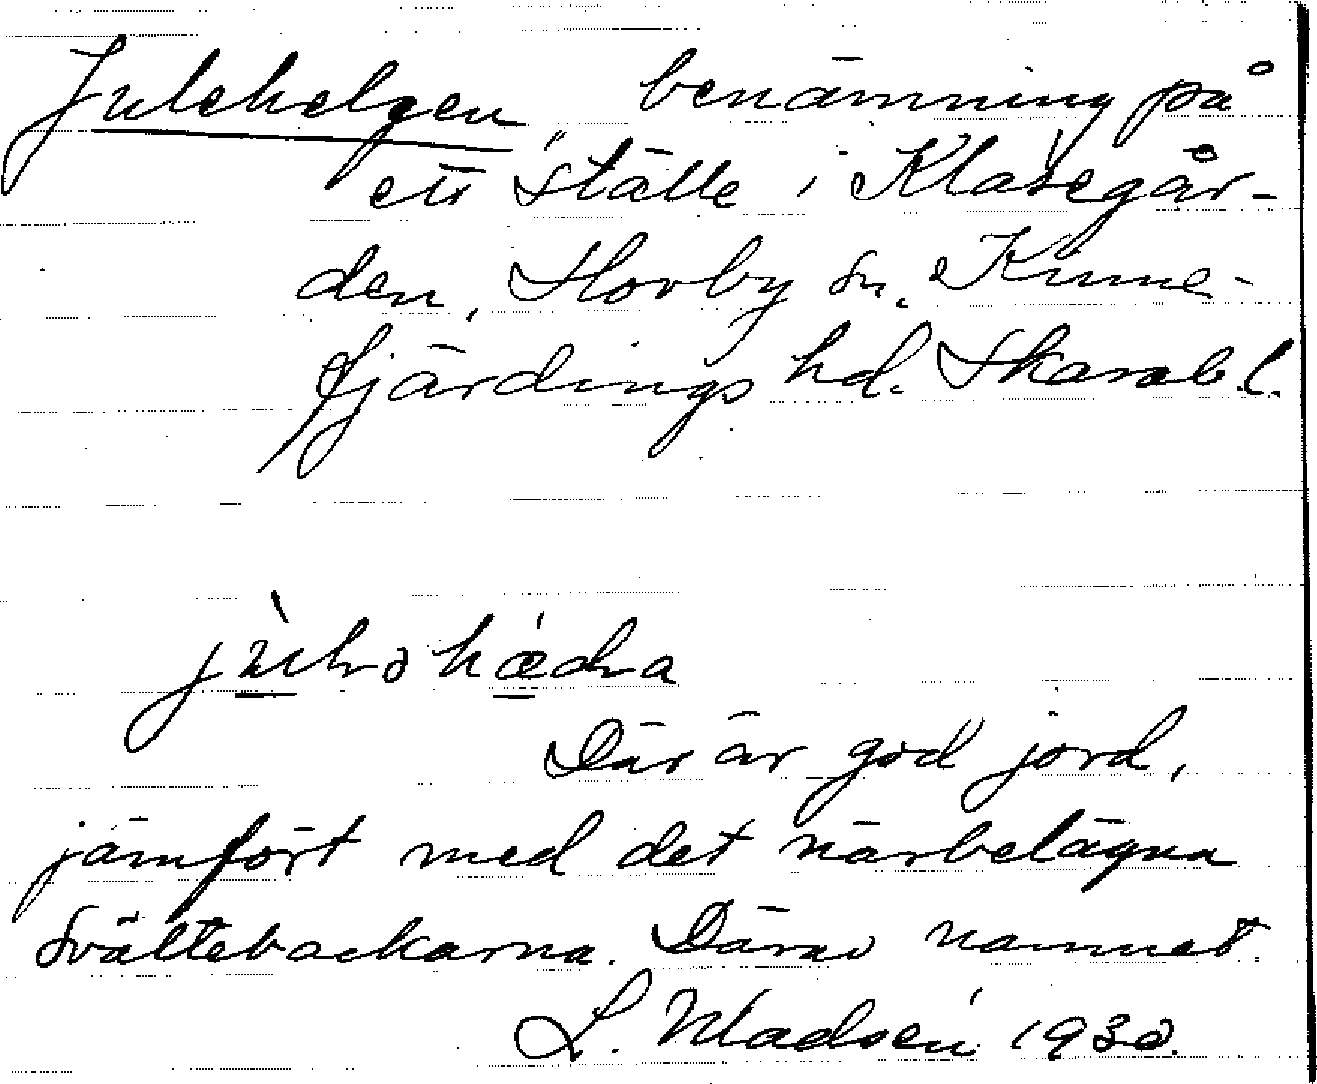 Julehelgen, benämning på
ett ställe i Klasegår-
den, Hovby sn. Kinne-
fjärdings hd. Skarab.l.
Där är god jord,
jämfört med det närbelägna
Svältebackarna. Därav namnet.
L. Madsén 1930.